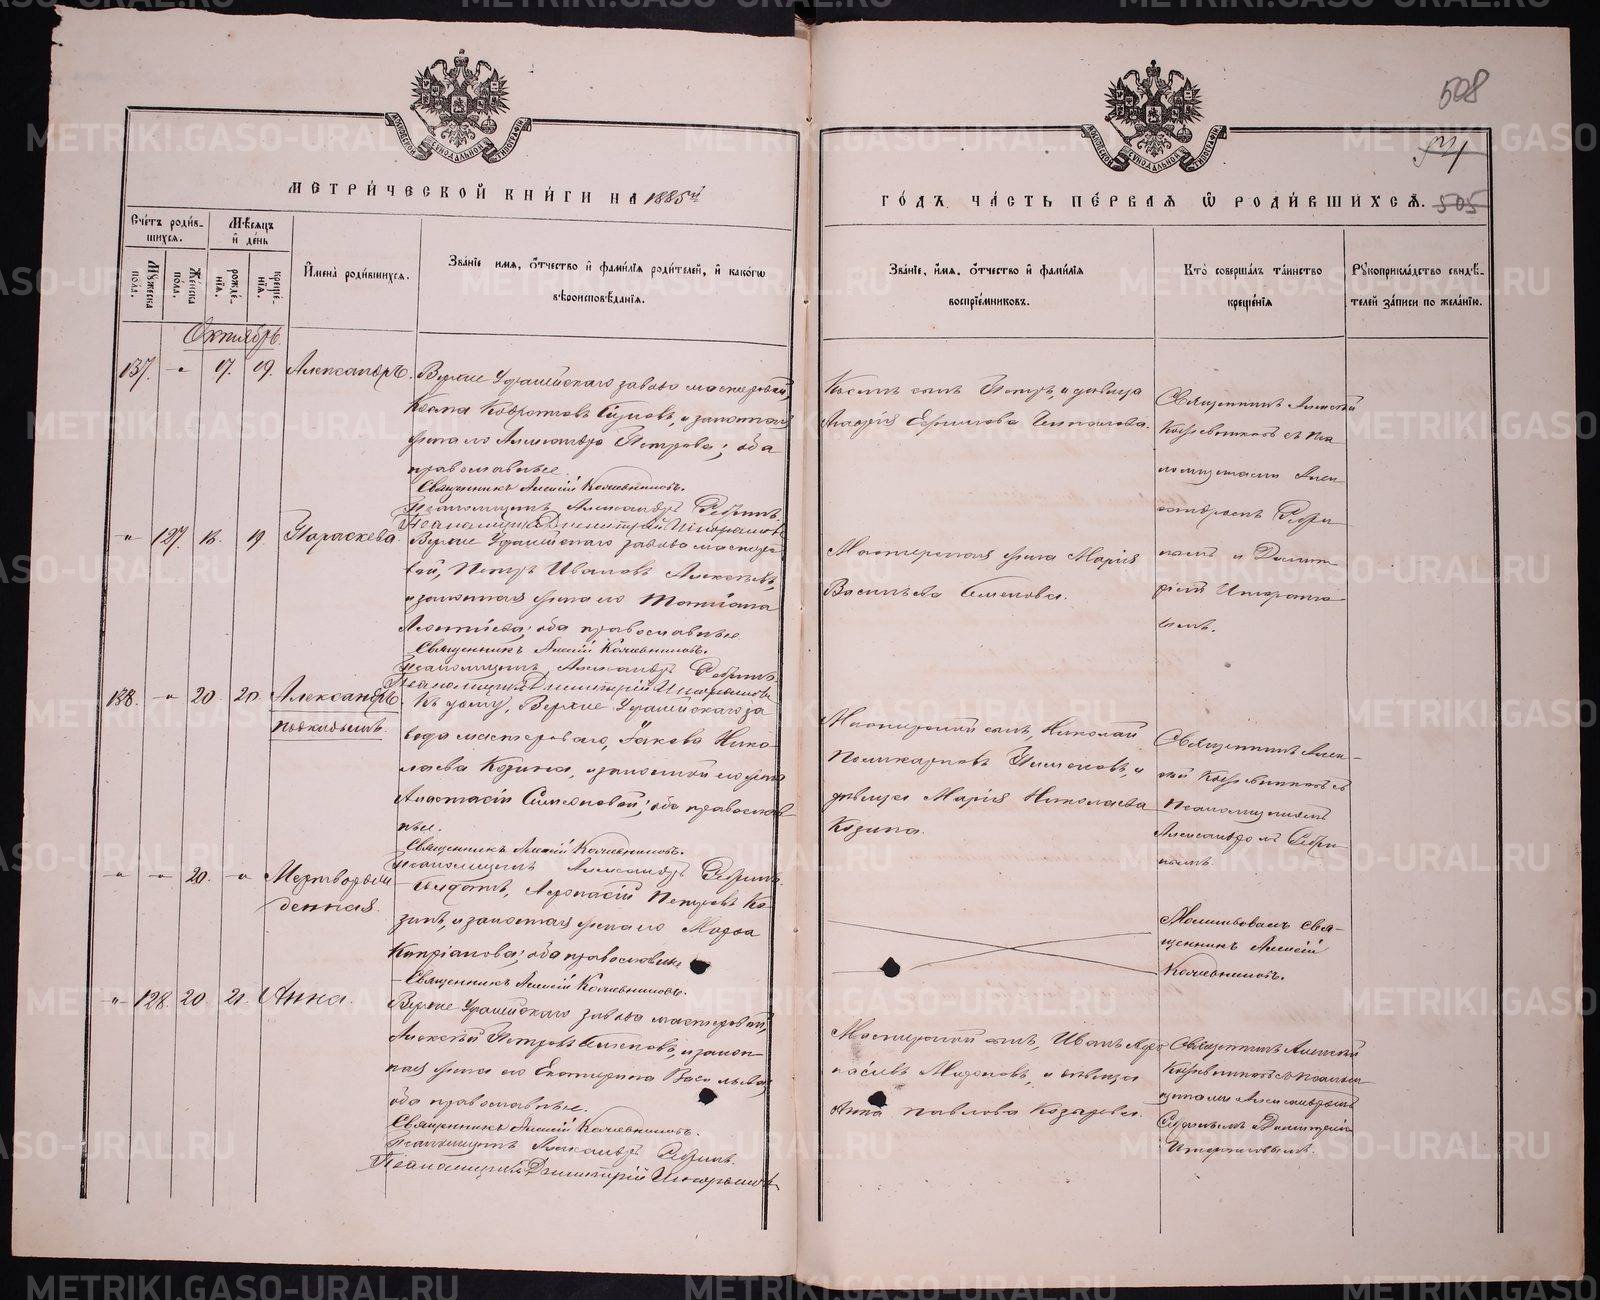 508
МЕТРИ́ЧЕСКОЙ КНИ́ГИ НА 1885й
ГО́ДЪ ЧА́СТЬ ПЕ́РВАЯ Ѿ РОДИ́ВШИХСЯ.
505
Сче́тъ роди́в-
шихся.
Му́жеска по́ла.
Же́нска по́ла.
Мѣ́сяцъ
и де́нь
рожде́-
нія.
креще́-
нія.
Имена̀ роди́вшихся.
Зва́ніе имя, о́тчество и фами́лія роди́телей, и како́гѡ
вѣроисповѣ́данія.
Зва́ніе, и́мя, о́тчество и фами́лія
воспріе́мниковъ.
Кто̀ соверша́лъ та́инство
креще́нія
Рукоприкла́дство свидѣ́-
телей за́писи по жела́нію.
Октябрь.
137. " 17. 19. Александръ.
Верхне Уфалейскаго завода мастеровой,
Косма, и законная
жена его Александра Петрова; оба
православные.
Священникъ Алексій Кожевниковъ.
Псаломщикъ Александръ
Псаломщикъ Димитрій
сынъ Петръ, и дѣвица
Марія Ефимова
Священникъ Алексій
Кожевниковъ съ пса-
ломщиками Алек-
сандромъ
и Димит-
ріемъ
" 127. 18. 19. Параскева.
Верхне Уфалейскаго завода мастеро-
вой, Петръ Ивановъ
и законная жена его Татіана
Леонтіева; оба православные.
Священникъ Алексій Кожевниковъ.
Псаломщикъ Александръ
Псаломщикъ Димитрій
Мастерская жена Марія
Васильева Семенова.
138. " 20. 20. Александръ
подкидышъ.
Къ дому, Верхне Уфалейскаго за
вода мастероваго, Іакова Нико-
лаева Козина, и законной его жены
Анастасіи Симеоновой; оба православ-
ные.
Священникъ Алексій Кожевниковъ.
Псаломщикъ Александръ
Мастерской сынъ, Николай
Поликарповъ Пименовъ, и
дѣвица Марія Николаева
Козина.
Священникъ Алек-
сій Кожевниковъ съ
Псаломщикомъ
Александромъ
" " 20. " Мертворож
денная.
Солдатъ, Афанасій Петровъ Ко-
зинъ, и законная жена его Марѳа
Кипріанова; оба православные
Священникъ Алексій Кожевниковъ.
Молитвовалъ Свя-
щенникъ Алексій
Кожевниковъ.
" 128. 20. 21. Анна.
Верхне Уфалейскаго завода мастеровой,
Алексѣй Петровъ Семеновъ, и закон-
ная жена его Екатерина Васильева;
оба православные.
Священникъ Алексій Кожевниковъ.
Псаломщикъ Александръ
Псаломщикъ Димитрій
Мастерской сынъ, Иванъ Афа-
насіевъ Мироновъ, и дѣвица
Анна Павлова Козырева.
Священникъ Алексій
Кожевниковъ съ псалом-
щиками Александромъ
и Димитріемъ
METRIKI.GASO-URAL.RU